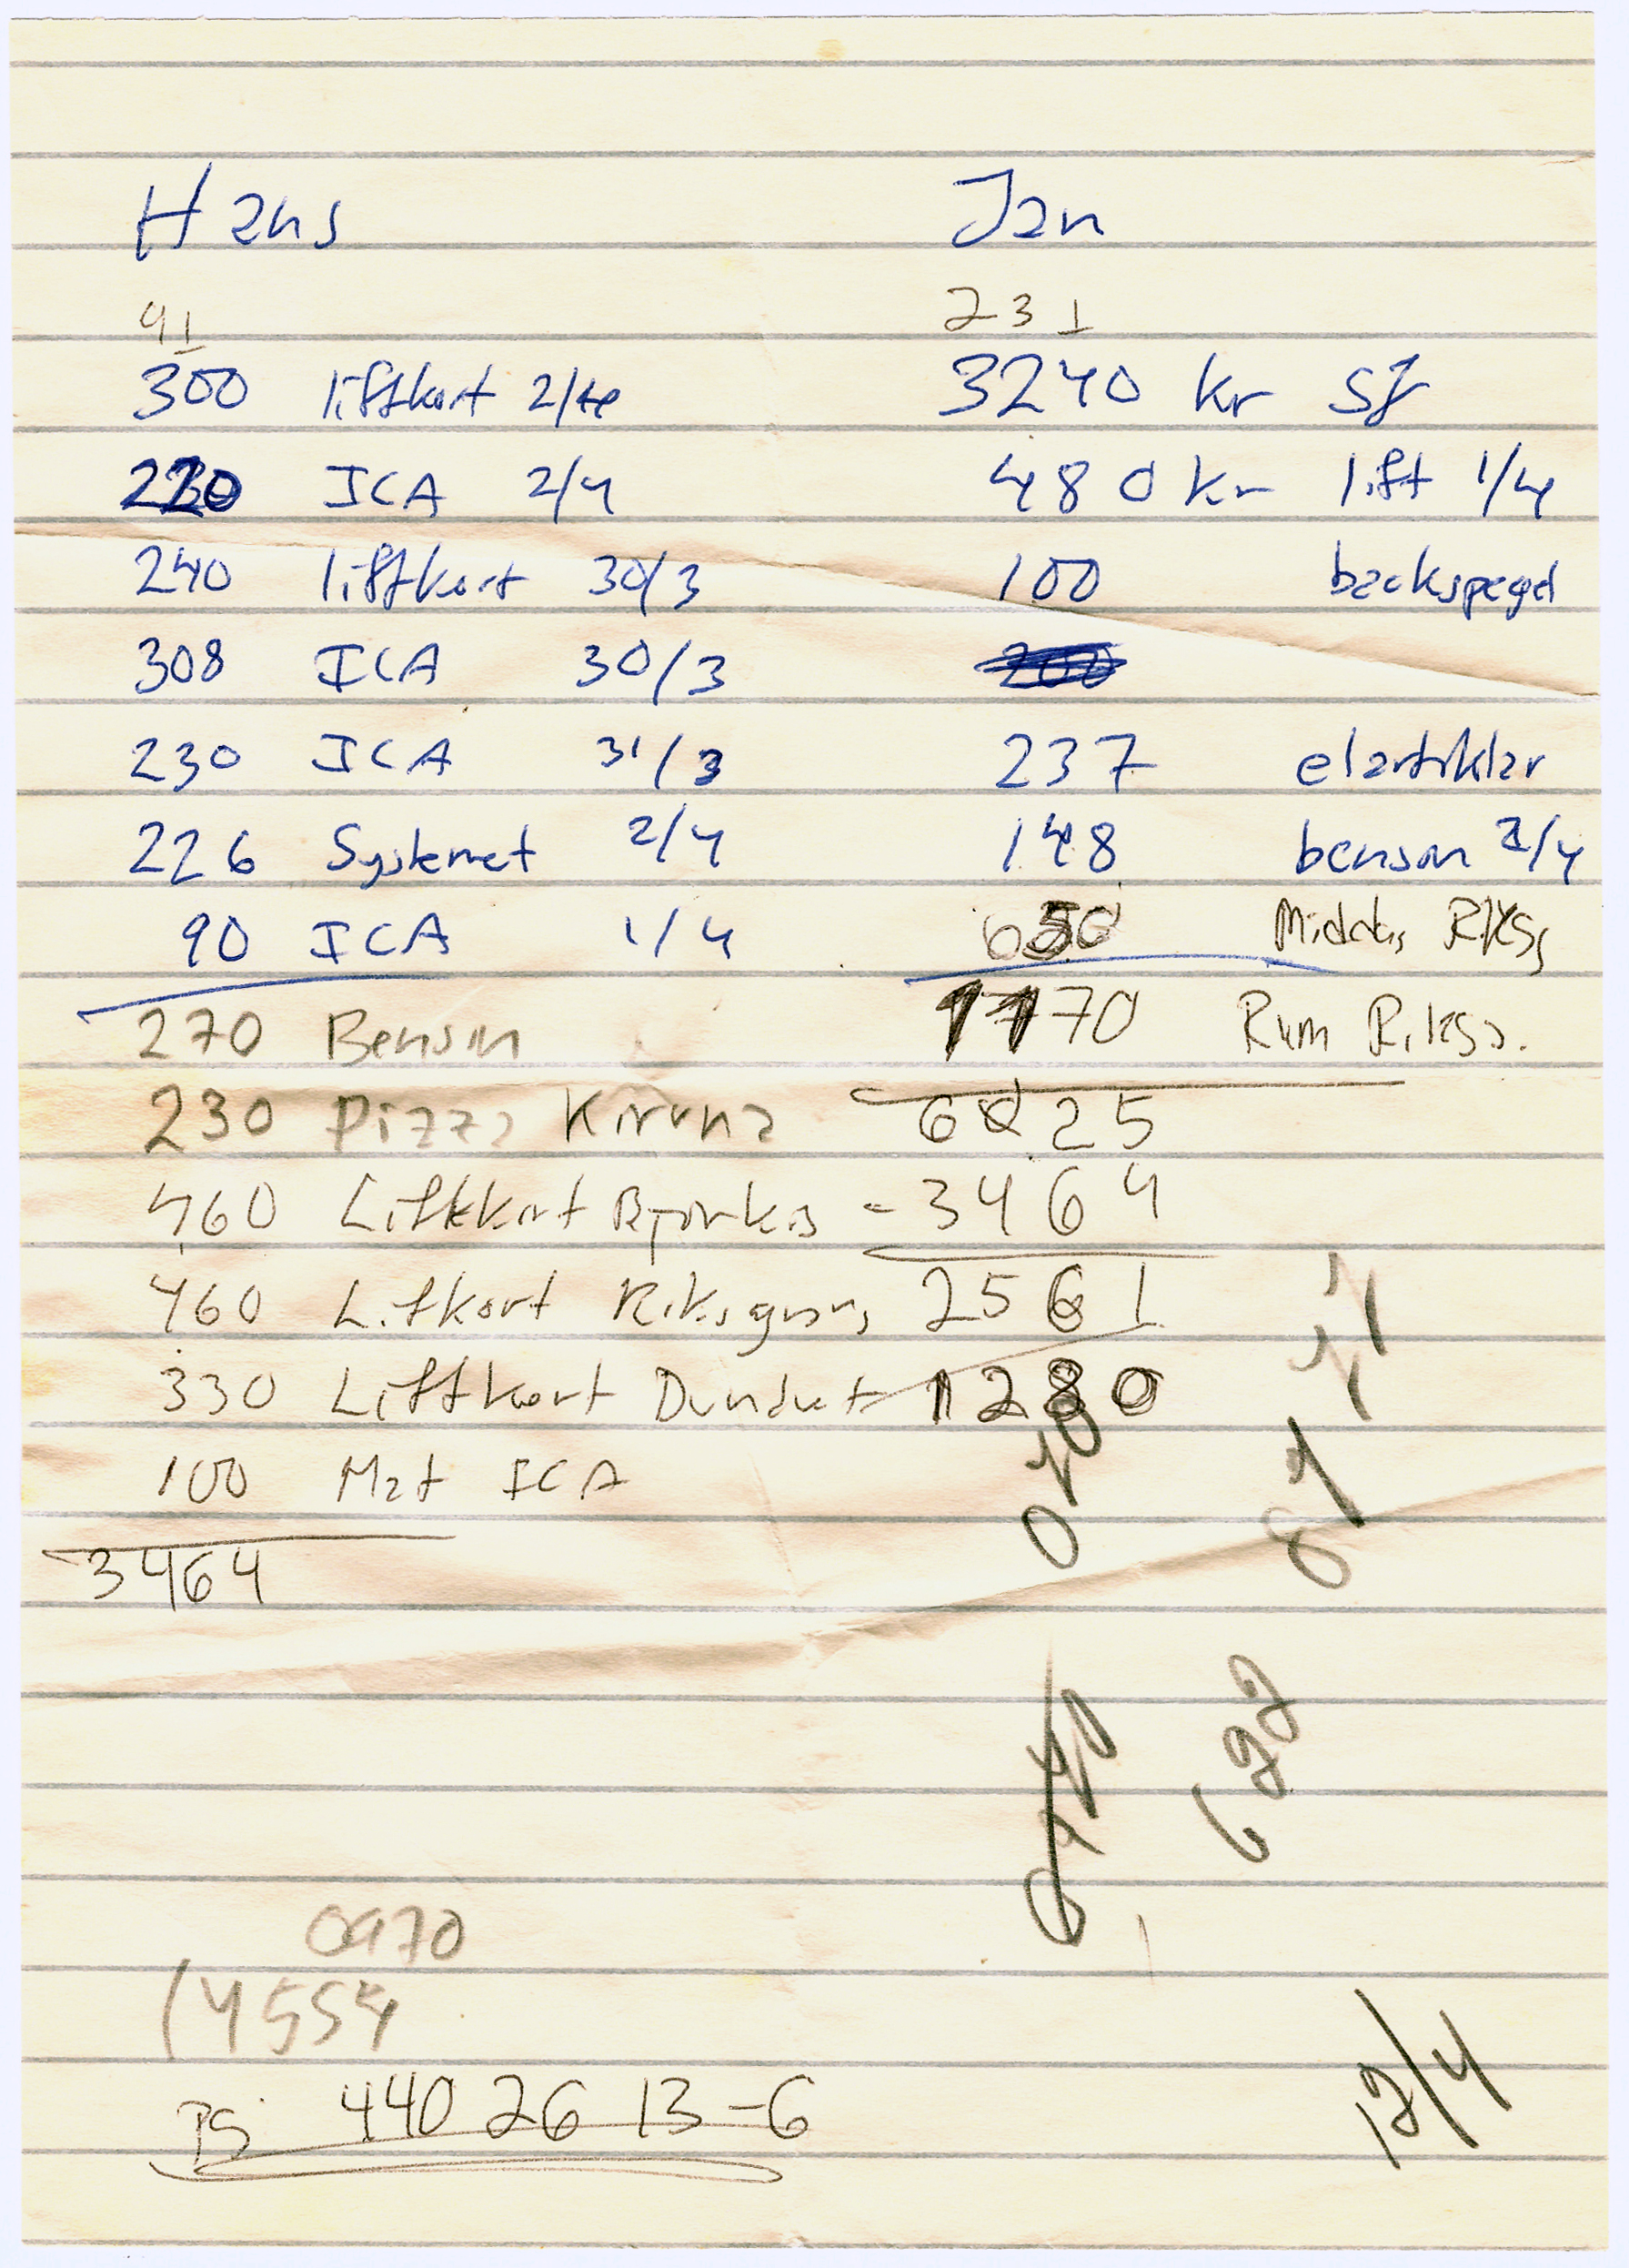 Hans
41
300 liftkort 2/4
220 ICA 2/4
240 liftkort 30/3
308 ICA 30/3
230 ICA 31/3
226 Systemet 2/4
90 ICA 1/4
270 Bensin
230 Pizza Kiruna
460 Liftkort Björkis
460 Lifkort Riksgräns
330 Liftkort Dundret
100 Mat ICA
3464
Jan
231
3240 kr SJ
480 kr lift 1/4
100 backspegel
200
237 elartiklar
148 bensin 2/4
650 Midda, Riksg
1170 Rum Riksg.
6025
-3464
2561
1280
622
0970
(4554
PS 440 26 13-6
12/4